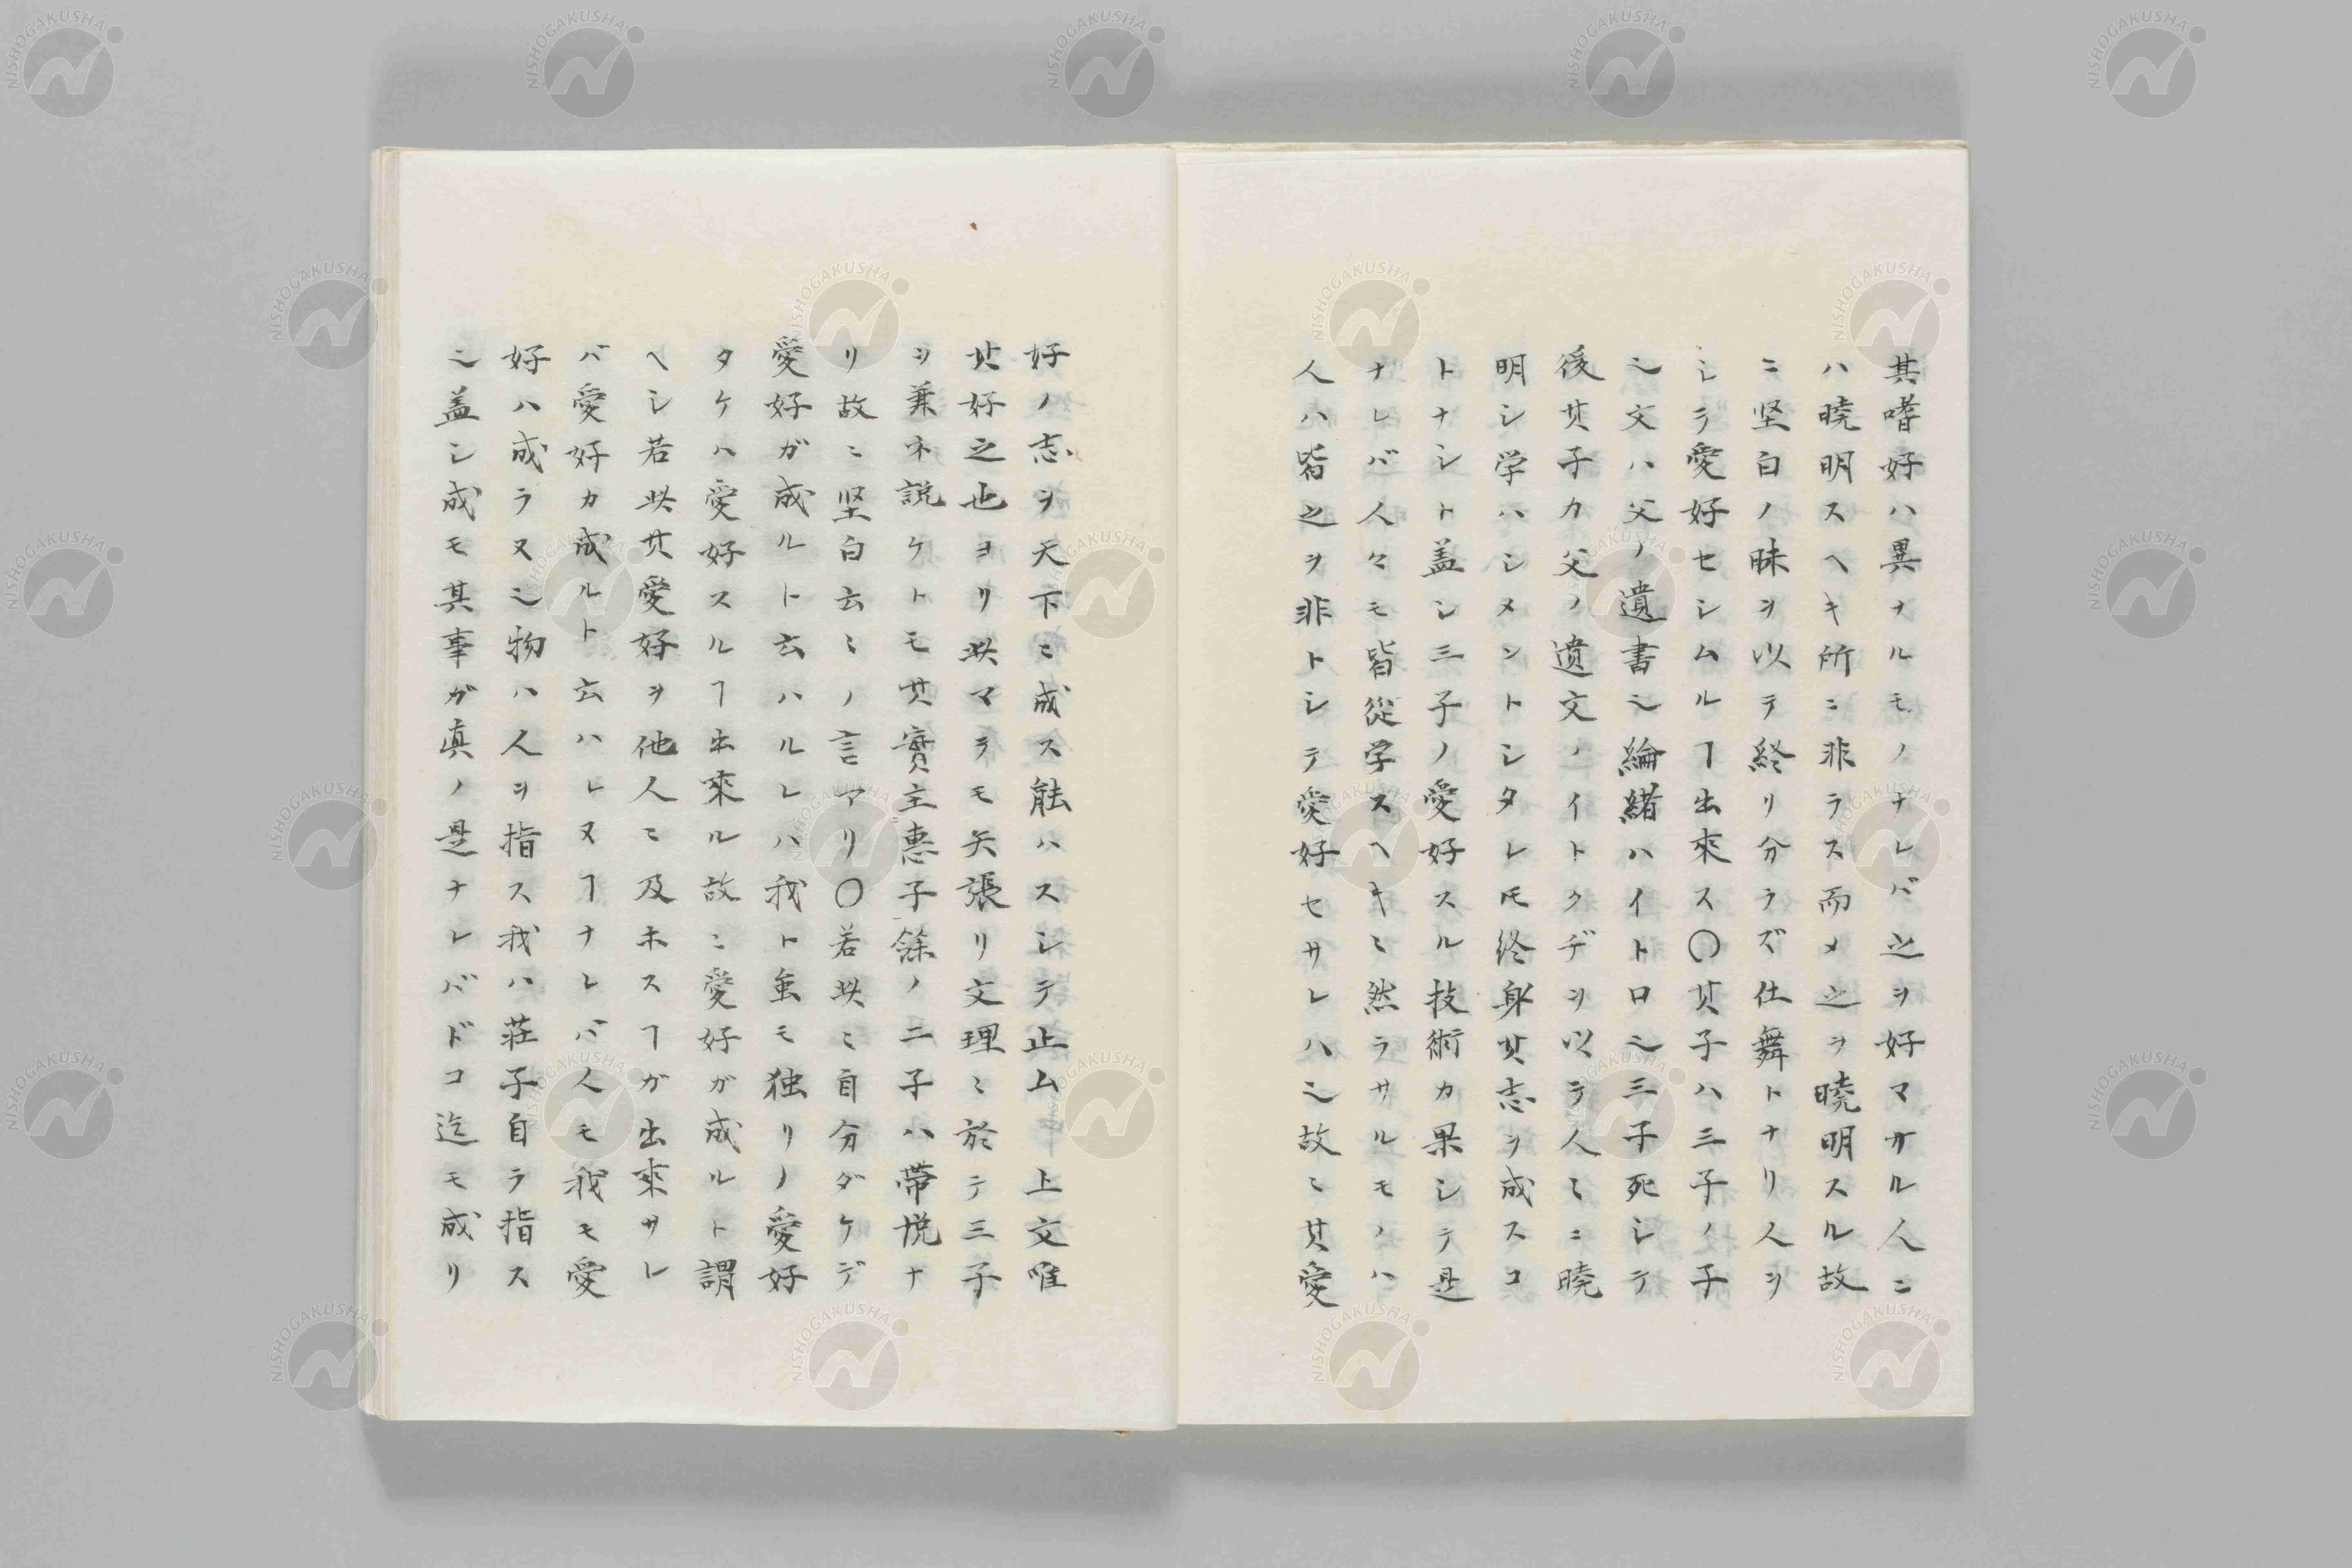 其嗜好ハ異ナルモノナレバ之ヲ好マサル人ニ
ハ曉明スヘキ所ニ非ラス而メ之ヲ曉明スル故
ニ坚白ノ昧ヲ以テ終リ分ラズ仕舞トナリ人ヲ
シテ愛好セシムルヿ出來ス〇其子ハ三子ノ子
也文ハ父ノ遺書也綸緒ハイトロ也三子死シテ
後其子カ父ノ遺文ノイトクヂヲ以テ人ミニ曉
明シ学ハシメントシタレ𪜈終身其志ヲ成スコ
トナシト盖シ三子ノ愛好スル技術カ果シテ是
ナレバ人々モ皆從学スヘキニ然ラサルモノハ
人ハ皆之ヲ非トシテ愛好セサレハ也故ニ其愛
好ノ志ヲ天下ニ成ス能ハスシテ止ム　上文唯
其好之也ヨリ此マテモ矢張リ文理ニ於テ三子
ヲ兼ネ説ケトモ其實主惠子餘ノ二子ハ帶悦ナ
リ故ニ坚白云ミノ言アリ〇若此ニ自分ダケデ
愛好ガ成ルト云ハルレハ我ト虽モ独リノ愛好
タケハ愛好スルヿ出來ル故ニ愛好ガ成ルト謂
ヘシ若此其愛好ヲ他人ニ及ホスヿガ出來サレ
バ愛好カ成ルト云ハレヌヿナレバ人モ我モ愛
好ハ成ラヌ也物ハ人ヲ指ス我ハ莊子自ラ指ス
也盖シ成モ其事ガ真ノ是ナレバドコ迄モ成リ